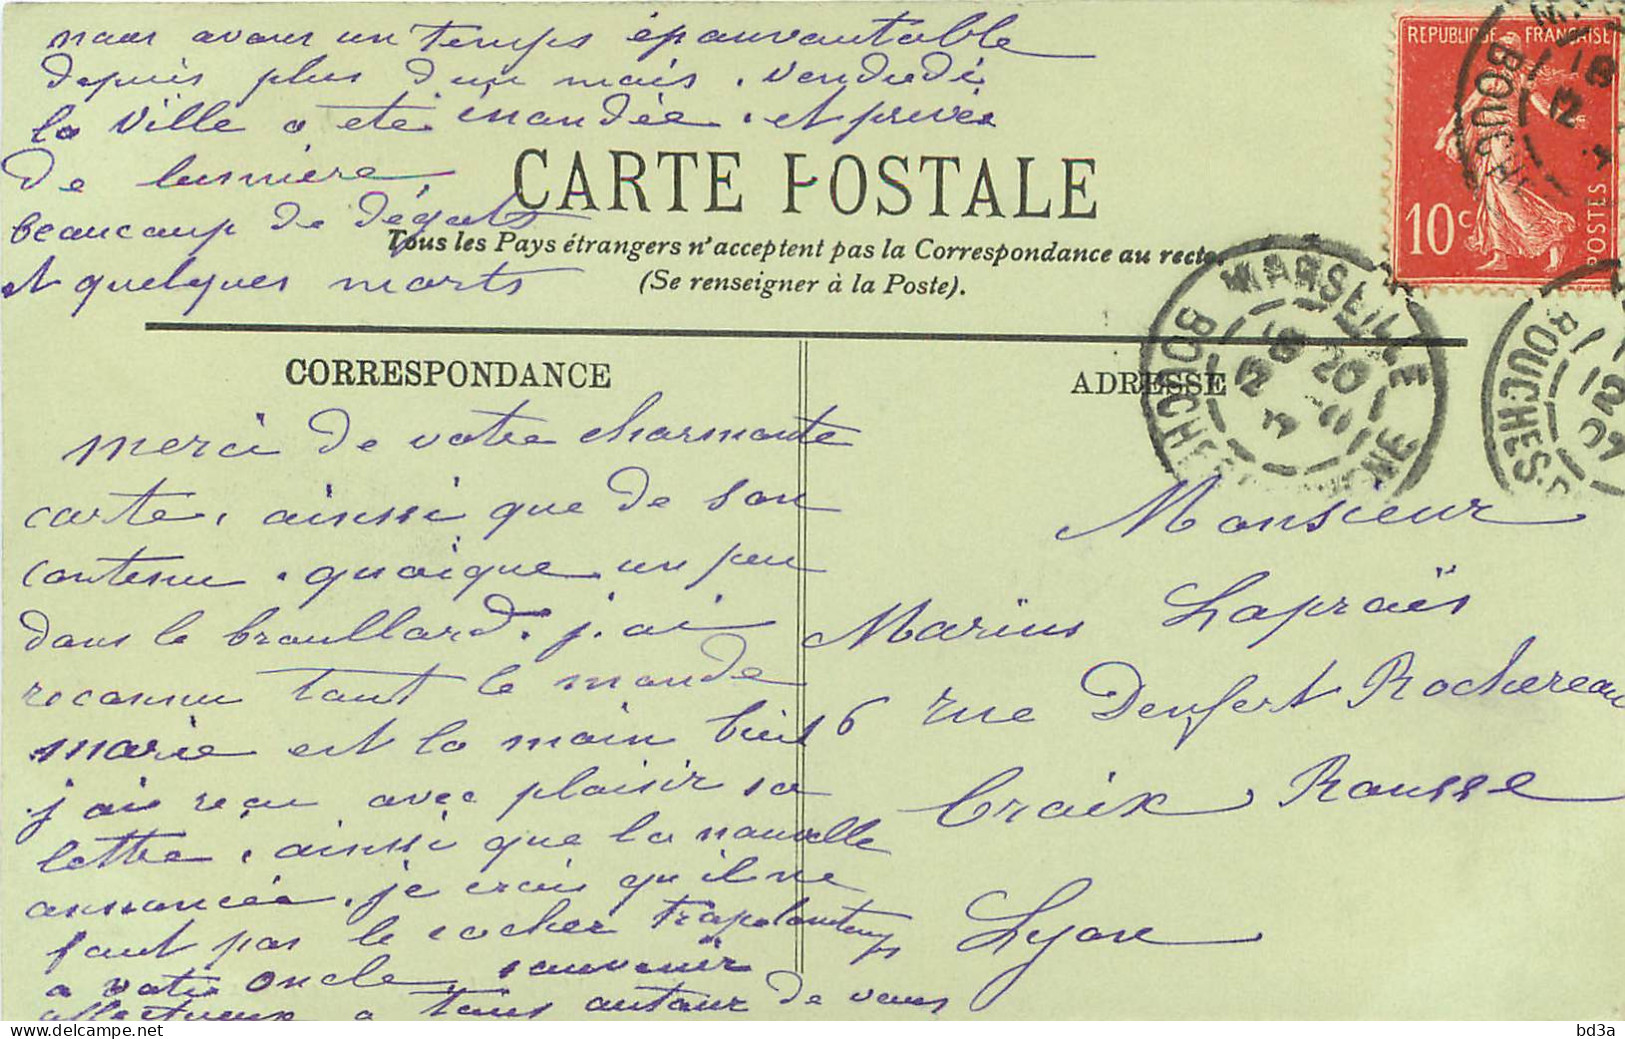 nous avons un temps épouvantable
depuis plus d'un mois. Vendredi
la Ville a eté inondée. et privée
de lumière,
beaucoup de dégats
et quelques morts
CARTE POSTALE
Tous les Pays étrangers n'acceptent pas la Correspondance au recto.
(Se renseigner à la Poste).
REPUBLIQUE FRANÇAISE
10c
POSTES
MARSEILLE
BOUCHES
BOUCHES
CORRESPONDANCE
merci de votre charmante
carte, ainssi que de son
contenu. quoique un peu
dans le broullard. j.ai
reconnu tout le monde
marie est la main
j ai reçu avec plaisir sa
lettre, ainssi que la nouvelle
annoncée. je crois qu'il ne
faut pas le cacher trop longtemps
a votre oncle, souvenir
affectueux a tous autour de vous
ADRESSE
Monsieur
Marïus Lapraïs
6 rue Denfert Rochereau
Croix Rousse
Lyon
bd3a